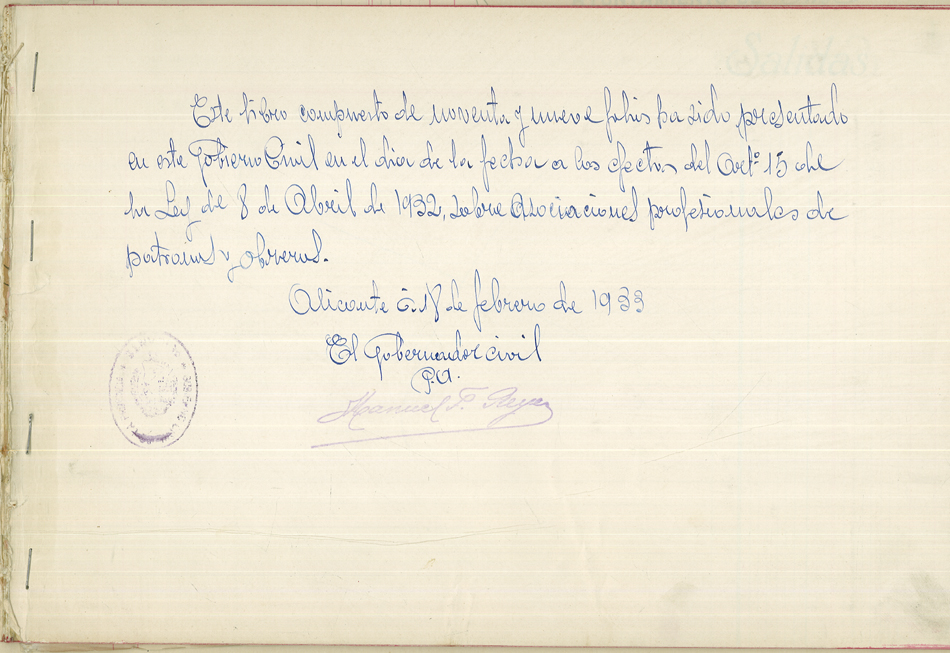 Este libro compuesto de noventa y nueve folios ha sido presentado
en este Gobierno Civil en el dia de la fecha a los efectos del Art.º 15 de
la Ley de 8 de Abril de 1932, sobre Asociaciones profesionales de
patronos y obreros.
Alicante á 18 de febrero de 1933
El Gobernador civil
P.A.
Manuel P.